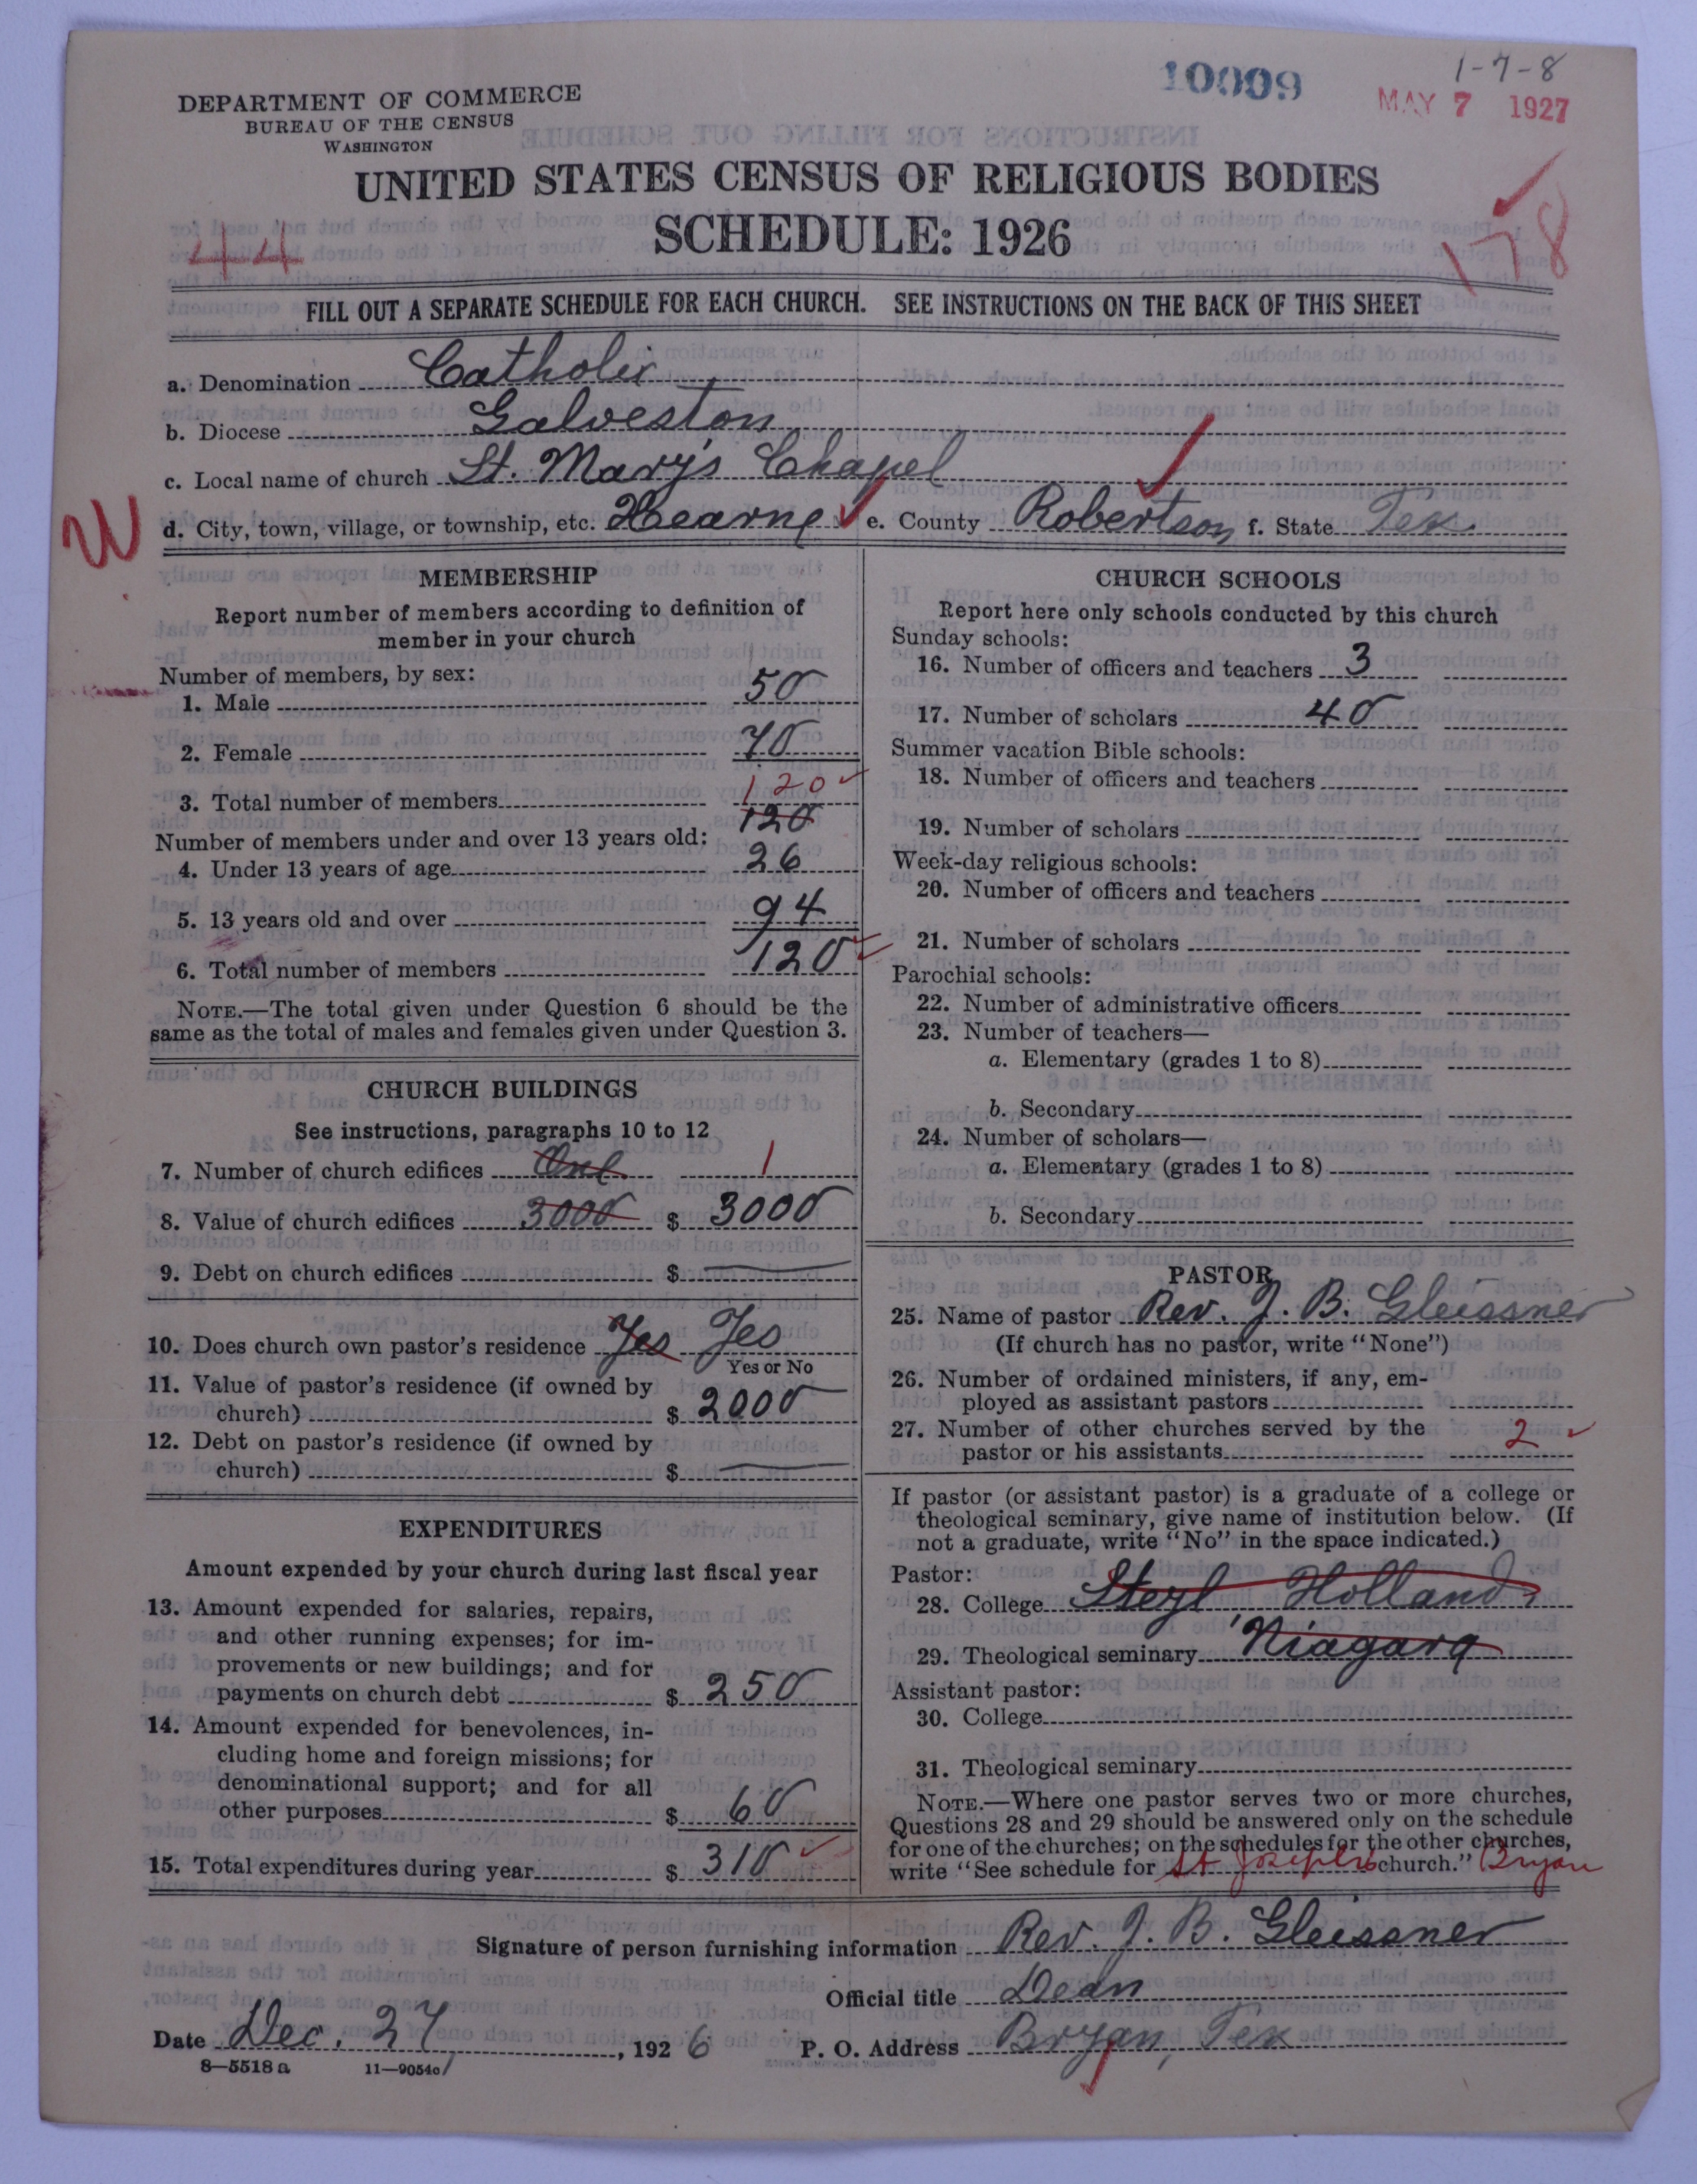 10009
1-7-8
MAY 7 1927
DEPARTMENT OF COMMERCE
BUREAU OF THE CENSUS
WASHINGTON
UNITED STATES CENSUS OF RELIGIOUS BODIES
SCHEDULE: 1926
44
178
FILL OUT A SEPARATE SCHEDULE FOR EACH CHURCH. SEE INSTRUCTIONS ON THE BACK OF THIS SHEET
a. Denomination Catholic
b. Diocese Galveston
c. Local name of church St. Mary's Chapel
W
d. City, town, village, or township, etc. Hearne e. County Robertson f. State Tex.
MEMBERSHIP
Report number of members according to definition of
member in your church
Number of members, by sex:
1. Male 50
2. Female 70
120
3. Total number of members 120
Number of members under and over 13 years old:
4. Under 13 years of age 26
5. 13 years old and over 94
6. Total number of members 120
NOTE.—The total given under Question 6 should be the
same as the total of males and females given under Question 3.
CHURCH BUILDINGS
See instructions, paragraphs 10 to 12
7. Number of church edifices One 1
8. Value of church edifices 3000 $ 3000
9. Debt on church edifices $ —
10. Does church own pastor's residence Yes Yes
Yes or No
11. Value of pastor's residence (if owned by
church) $ 2000
12. Debt on pastor's residence (if owned by
church) $ —
EXPENDITURES
Amount expended by your church during last fiscal year
13. Amount expended for salaries, repairs,
and other running expenses; for im-
provements or new buildings; and for
payments on church debt $ 250
14. Amount expended for benevolences, in-
cluding home and foreign missions; for
denominational support; and for all
other purposes $ 60
15. Total expenditures during year $ 310
CHURCH SCHOOLS
Report here only schools conducted by this church
Sunday schools:
16. Number of officers and teachers 3
17. Number of scholars 40
Summer vacation Bible schools:
18. Number of officers and teachers
19. Number of scholars
Week-day religious schools:
20. Number of officers and teachers
21. Number of scholars
Parochial schools:
22. Number of administrative officers
23. Number of teachers—
a. Elementary (grades 1 to 8)
b. Secondary
24. Number of scholars—
a. Elementary (grades 1 to 8)
b. Secondary
PASTOR
25. Name of pastor Rev. J. B. Gleissner
(If church has no pastor, write "None")
26. Number of ordained ministers, if any, em-
ployed as assistant pastors
27. Number of other churches served by the
pastor or his assistants 2
If pastor (or assistant pastor) is a graduate of a college or
theological seminary, give name of institution below. (If
not a graduate, write "No" in the space indicated.)
Pastor:
28. College Steyl Holland
29. Theological seminary Niagara
Assistant pastor:
30. College
31. Theological seminary
NOTE.—Where one pastor serves two or more churches,
Questions 28 and 29 should be answered only on the schedule
for one of the churches; on the schedules for the other churches,
write "See schedule for St Josephs church." Bryan
Signature of person furnishing information Rev. J. B. Gleissner
Official title Dean
Date Dec. 27, 1926 P. O. Address Bryan, Tex
8—5518 a 11—9054c1